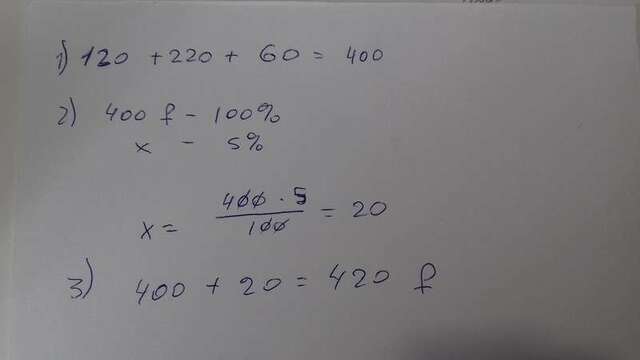 1) 120 + 220 + 60 = 400
2) 400 f - 100%
x - 5%
x = 400 · 5 / 100 = 20
3) 400 + 20 = 420 f